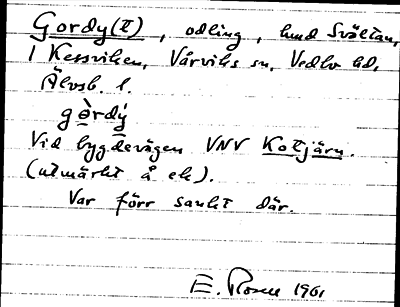 Gordy(t), odling, hmd Svältan,
i Kessviken, Vårviks sn, Vedbo hd,
Älvsb. l.
gòrdý
Vid bygdevägen VNV Kotjärn.
(utmärkt å ek).
Var förr sankt där.
E. Rosell 1961